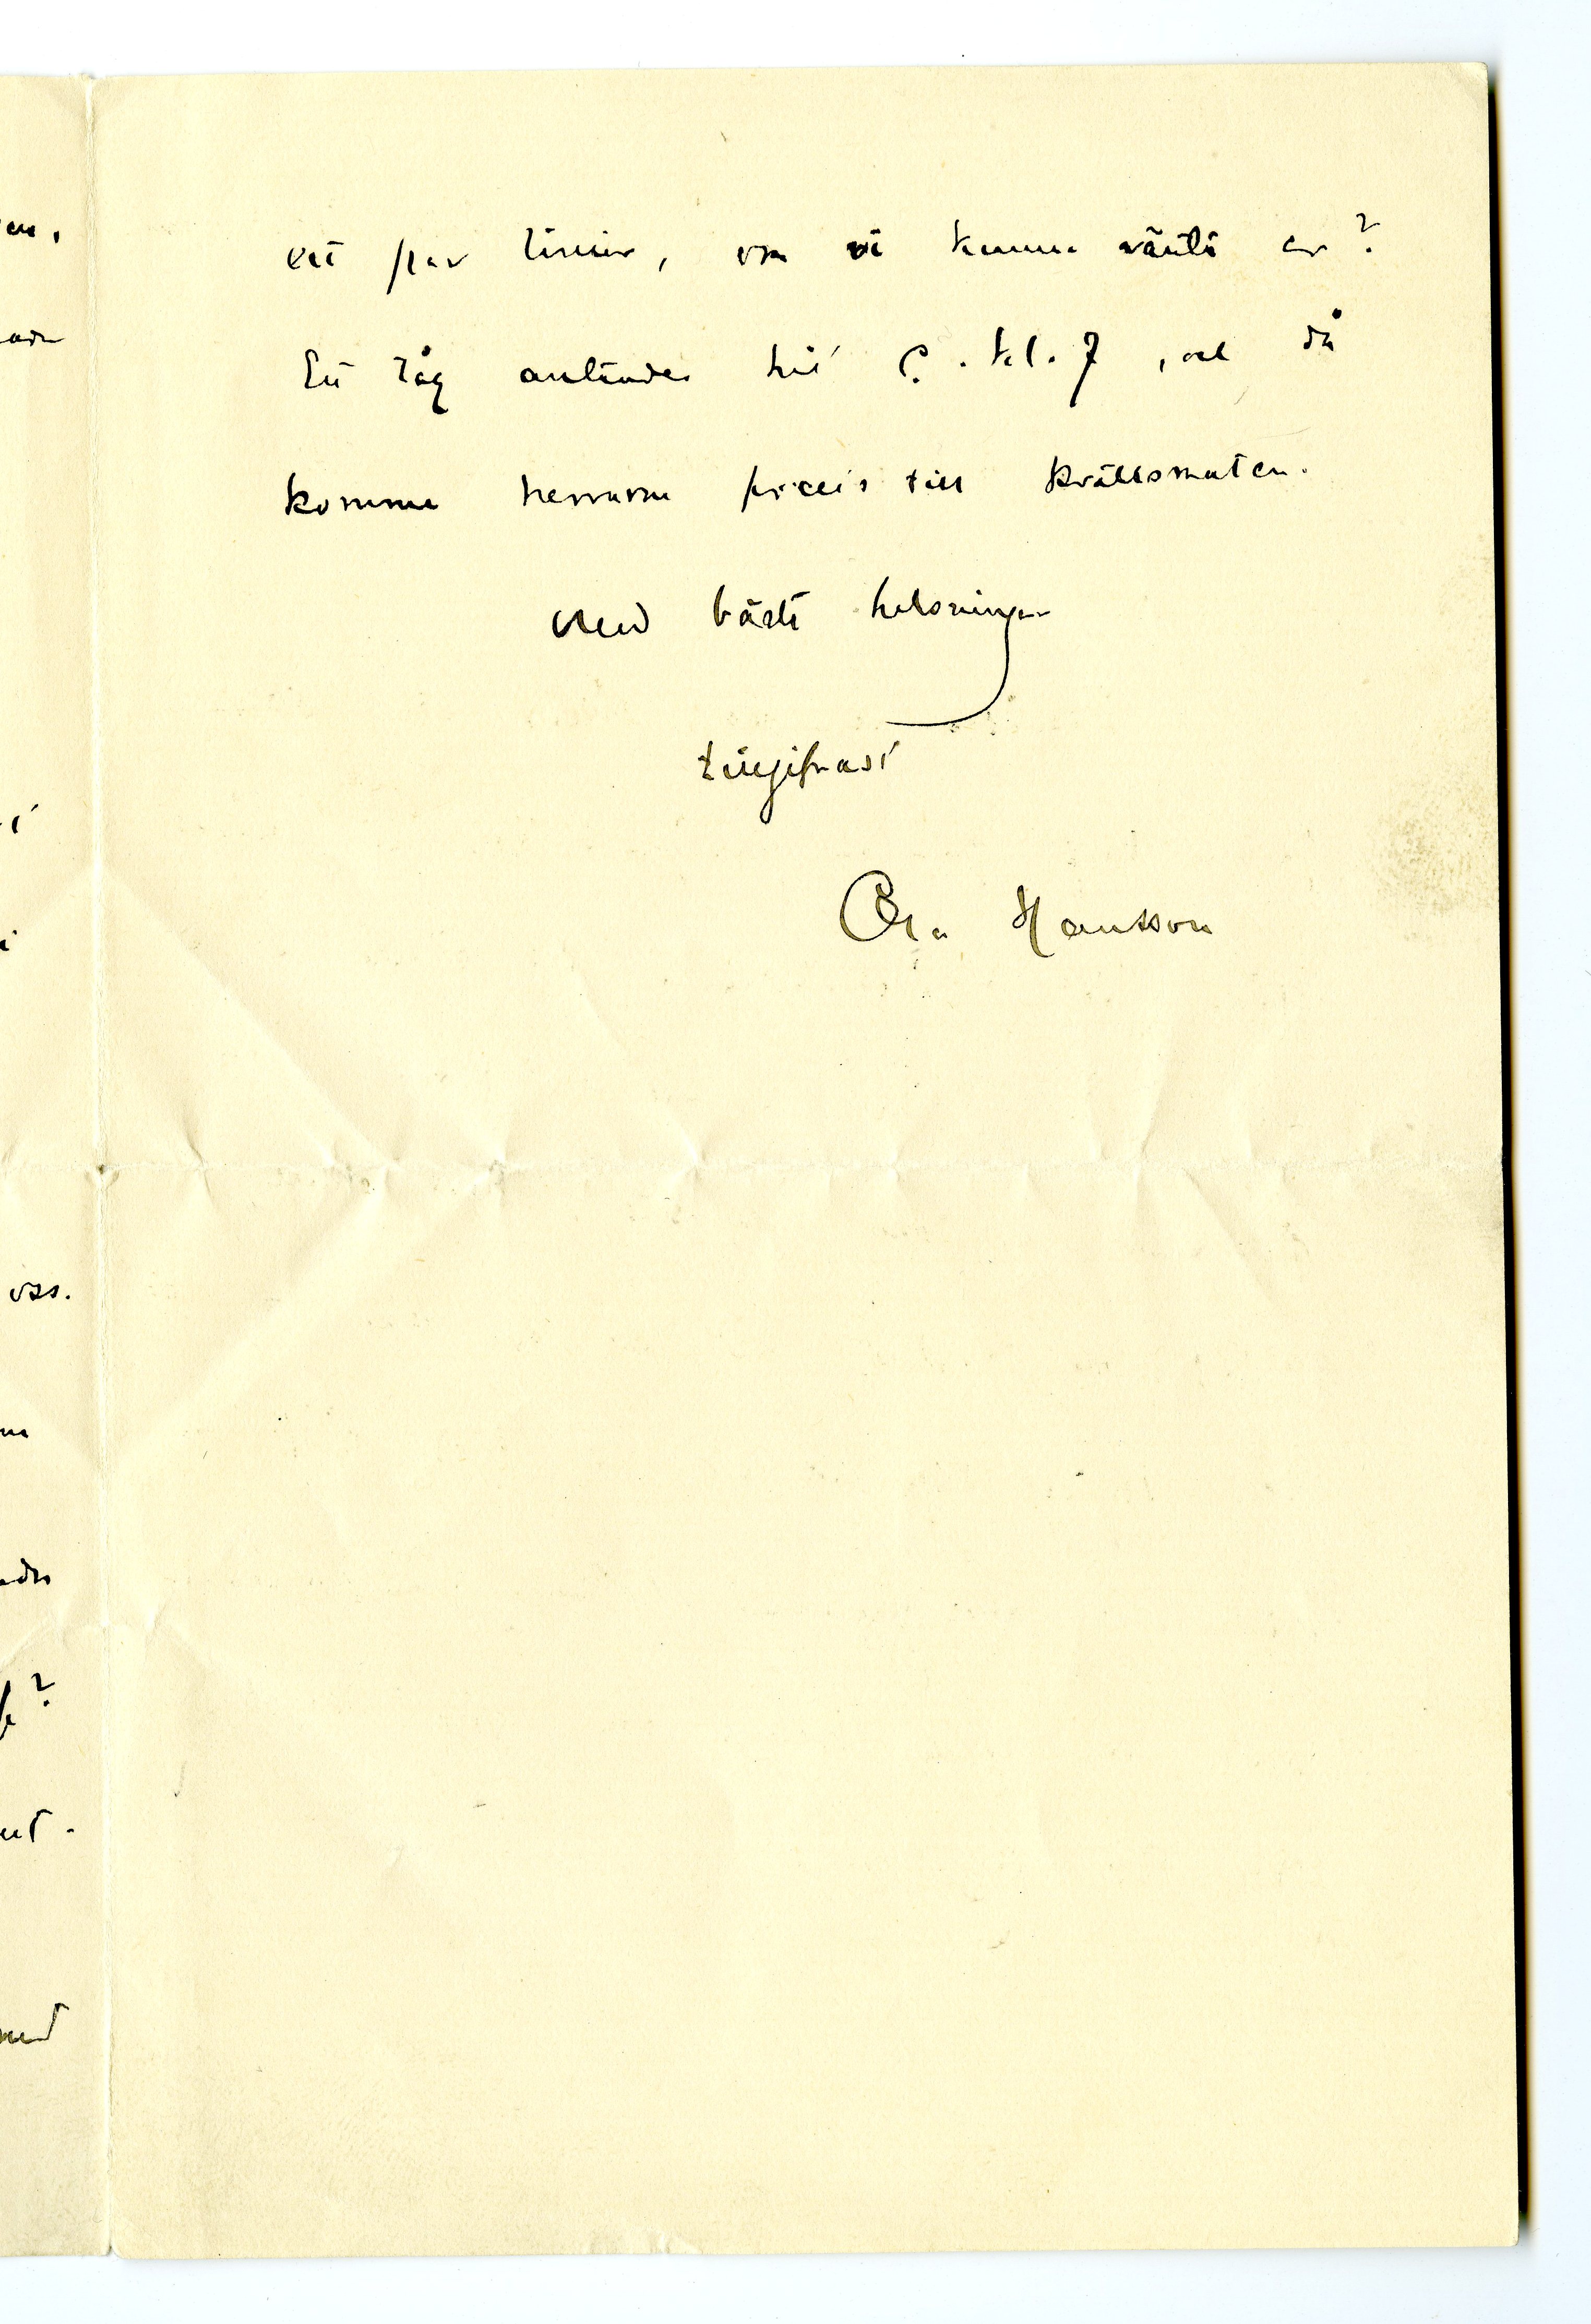 ett par linier, om vi kunna vänta er?
Ett tåg anländer hit c. kl. 7, och då
komma herrarna precis till kvällsmaten.
Med bästa helsningar
tillgifnast
Ola Hansson
en,
i
oss.
?